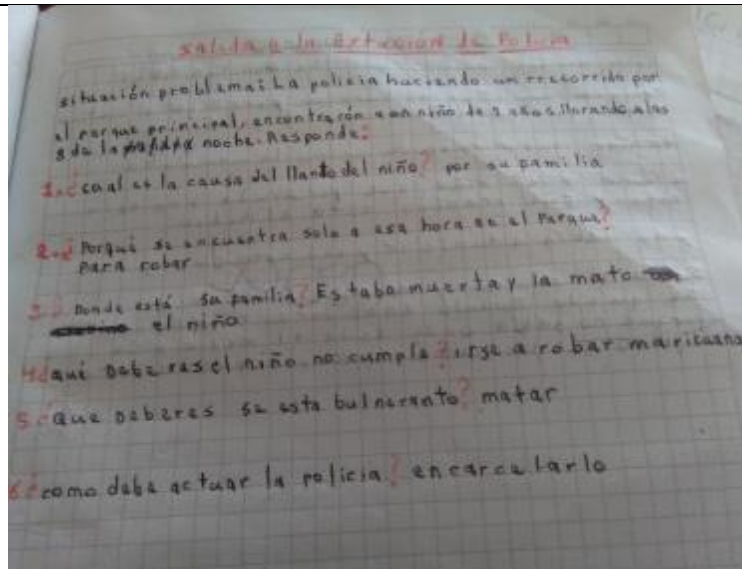 salida a la Extacion de Policia
situación problema: La policia haciendo un rrecorrido por
el parque principal, encontrarón a un niño de 9 años llorando a las
8 de la noche. Responde:
1. ¿cual es la causa del llanto del niño? por su pamilia
2. ¿Porqué se encuentra solo a esa hora en el Parque?
para robar
3. ¿Donde está su pamilia? Estaba muerta y la mato
el niño
4 ¿qué Deberes el niño no cumple? irse a robar marihuana
5 ¿Que deberes se esta bulneranto? matar
6 ¿como debe actuar la policia? encarcelarlo